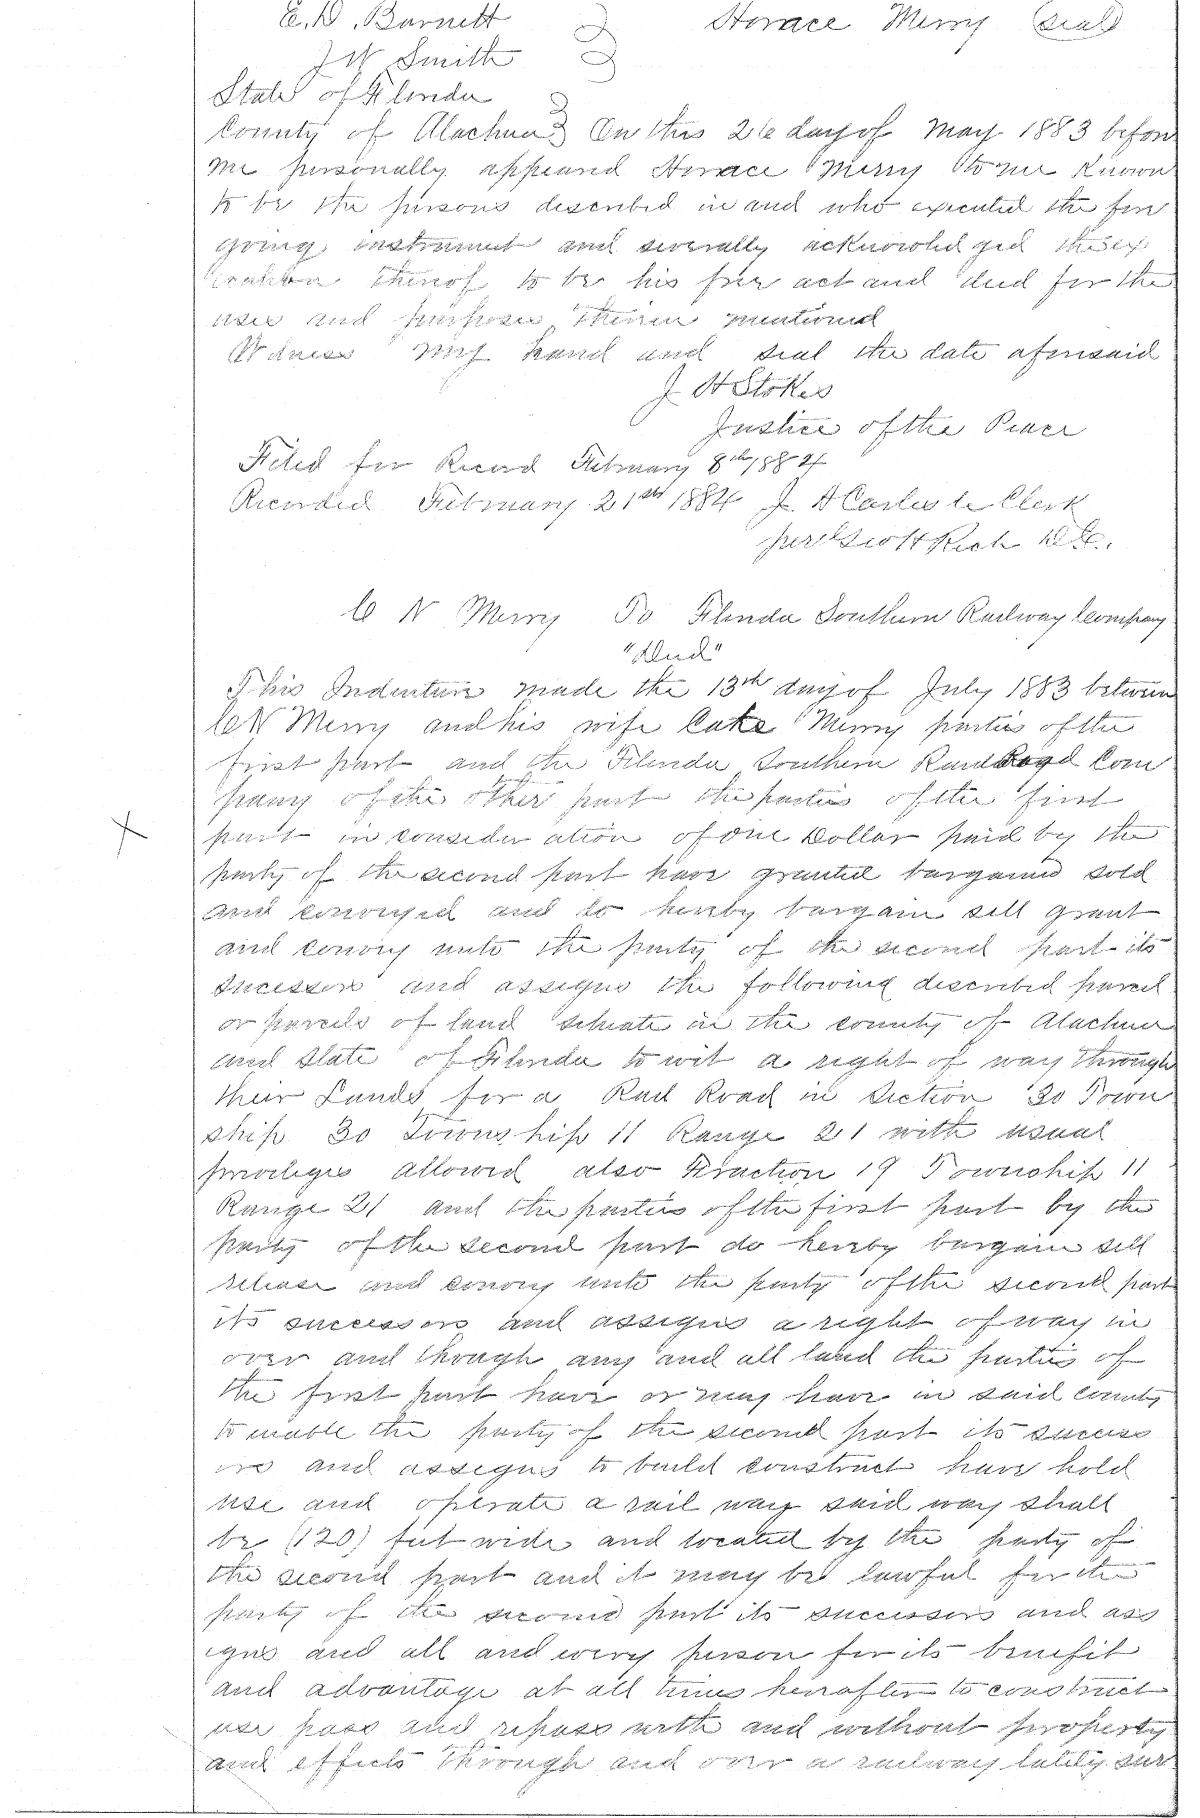 E. D. Barnett Horace Merry (seal)
J W Smith
State of Florida
County of Alachua On this 26 day of May 1883 before
me personally appeared Horace Merry to me Known
to be the persons described in and who executed the fore
going instrument and severally acknowledged the ex
ecution thereof to be his free act and deed for the
uses and purposes therein mentioned
Witness my hand and seal the date aforesaid
J H Stokes
Justice of the Peace
Filed for Record February 8th 1884
Recorded February 21st 1884 J. A Carlisle Clerk
per Geo H Rich D.C.
C N Merry To Florida Southern Railway Company
"Deed"
This Indenture made the 13th day of July 1883 between
C N Merry and his wife Cate Merry parties of the
first part and the Florida Southern Rail Road Com
pany of the other part the parties of the first
part in consideration of one Dollar paid by the
party of the second part have granted bargained sold
and conveyed and do hereby bargain sell grant
and convey unto the party of the second part its
sucessors and assigns the following described parcel
or parcels of land situate in the county of Alachua
and State of Florida to wit a right of way through
their Lands for a Rail Road in Section 30 Town
ship 30 Township 11 Range 21 with usual
privileges allowed also Fraction 19 Township 11
Range 21 and the parties of the first part by the
party of the second part do hereby bargain sell
release and convey unto the party of the second part
its successors and assigns a right of way in
over and though any and all land the parties of
the first part have or may have in said county
to enable the party of the second part its success
ors and assigns to build construct have hold
use and operate a rail way said way shall
be (120) feet wide and located by the party of
the second part and it may be lawful for the
party of the second part its successors and ass
igns and all and every person for its benefit
and advantage at all times hereafter to construct
use pass and repass with and without property
and effects through and over a railway lately sur